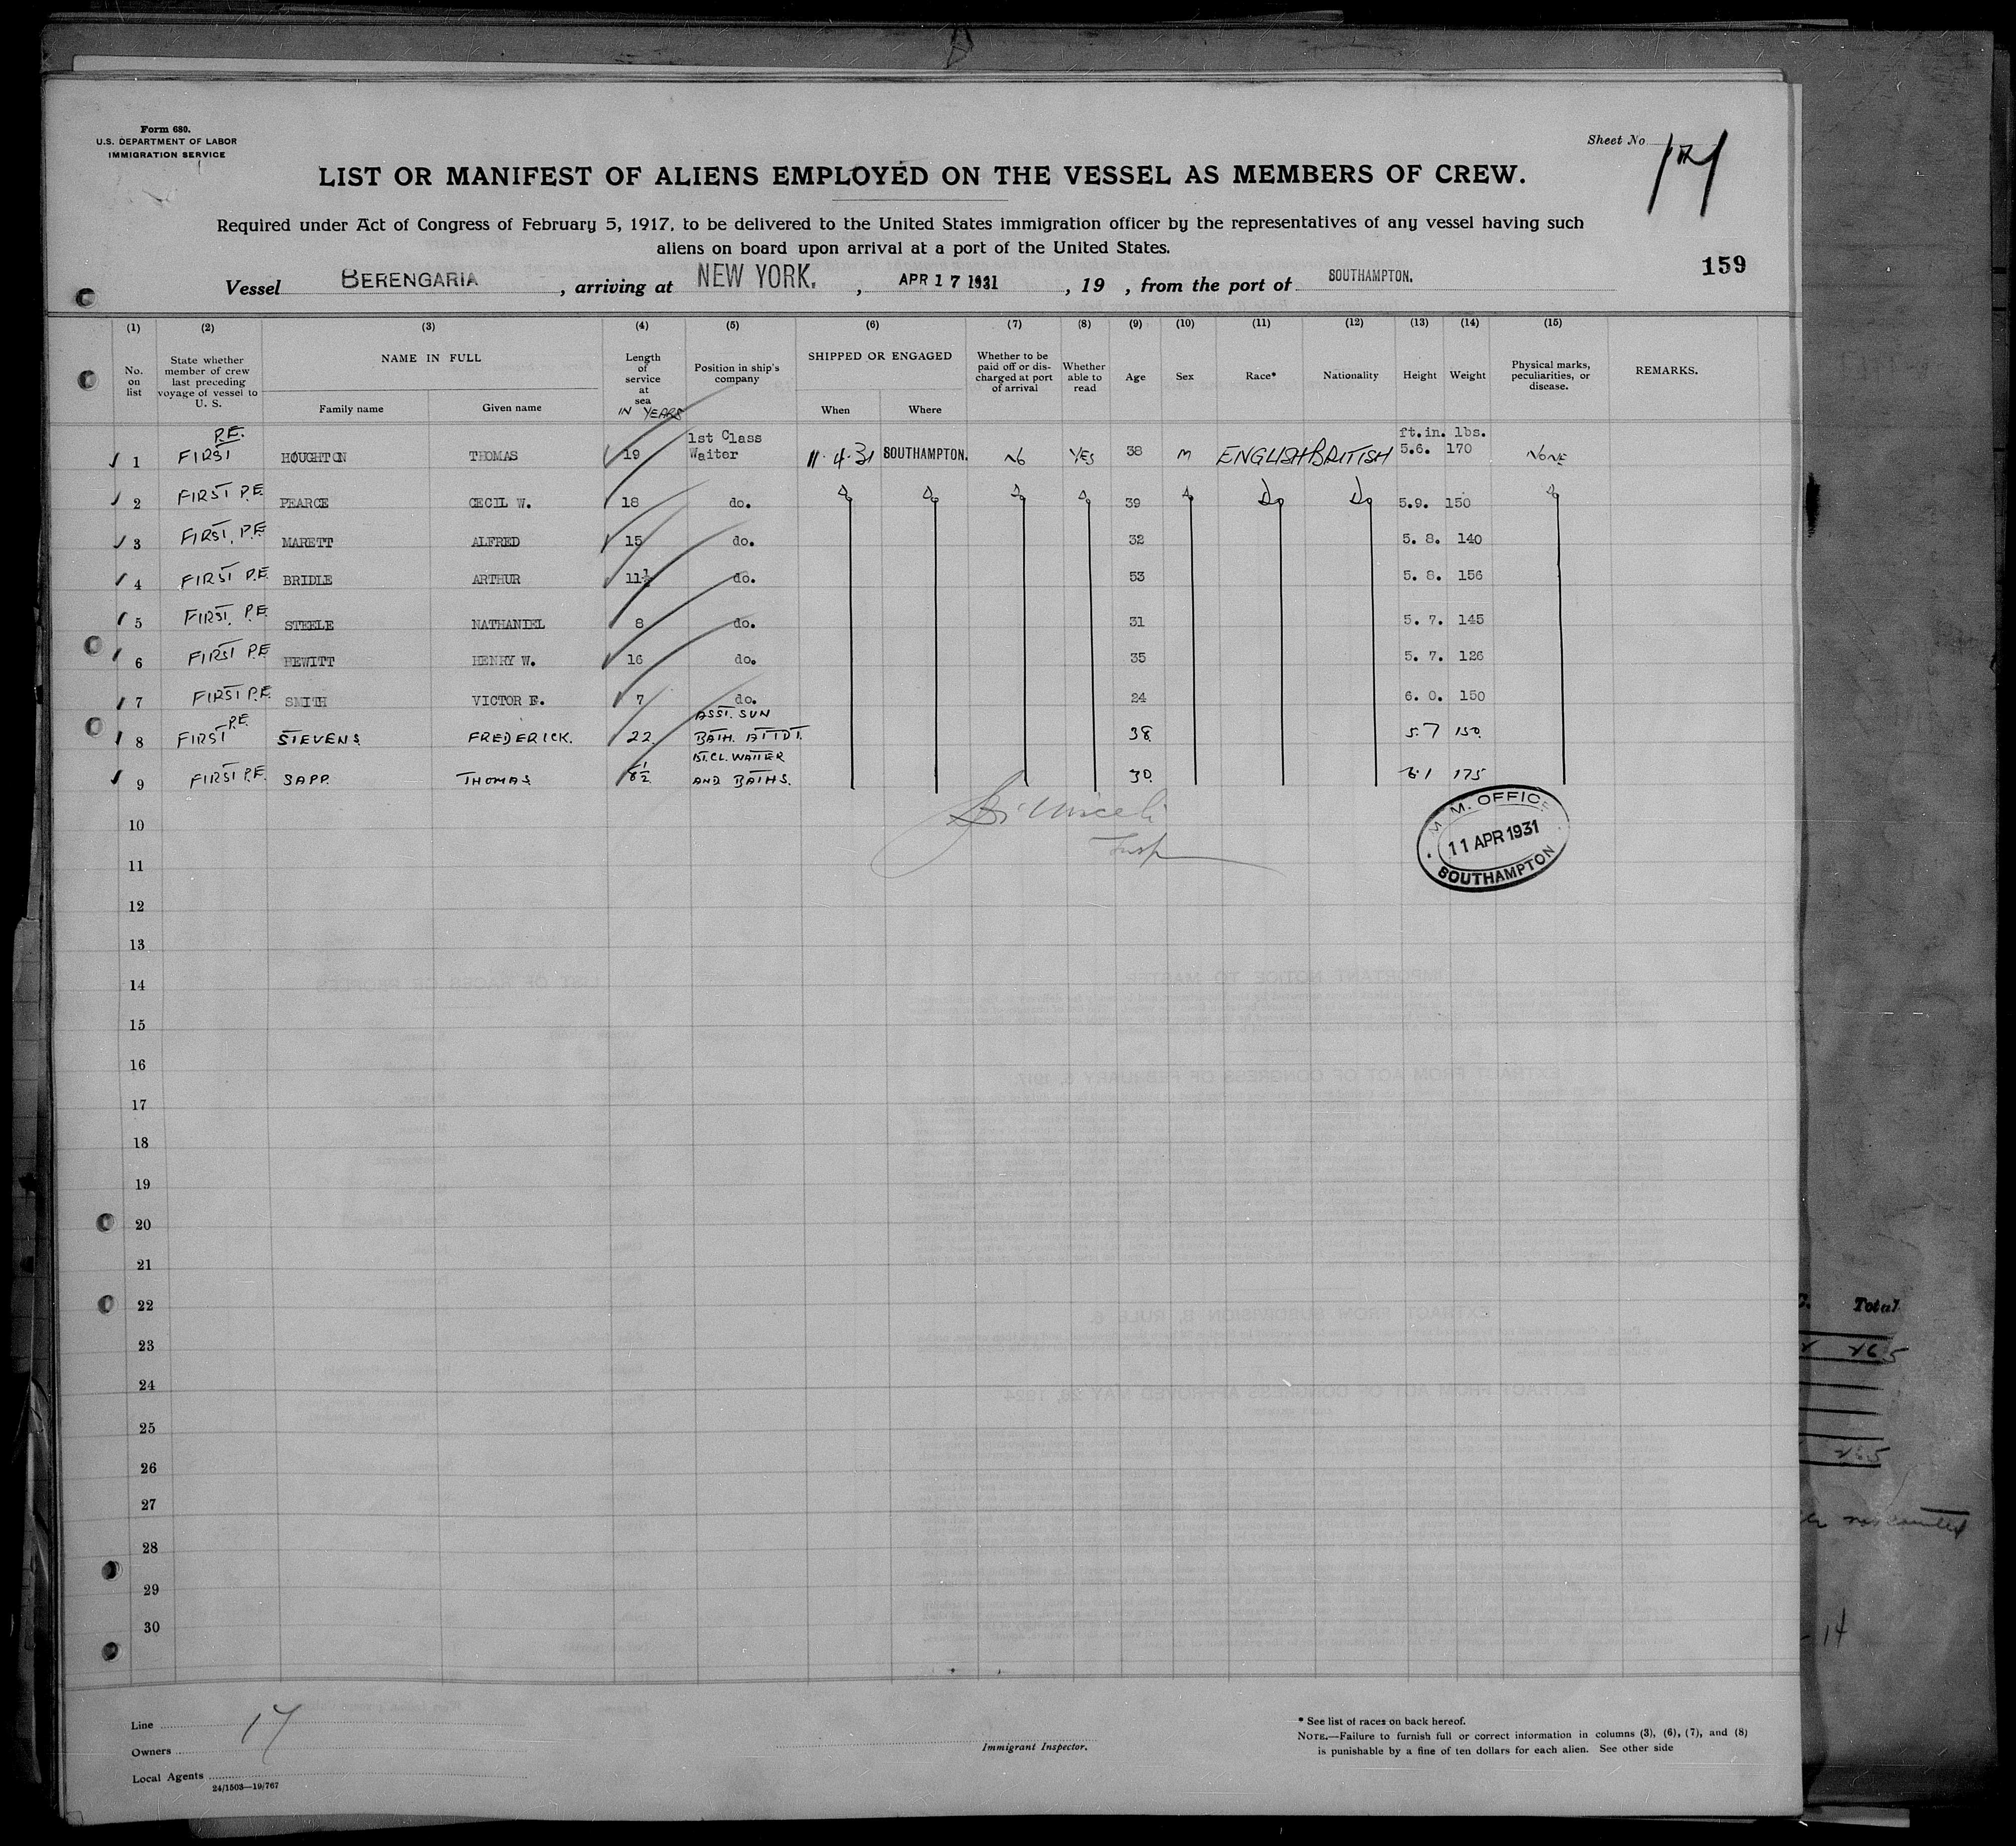 Form 680.
U.S. DEPARTMENT OF LABOR
IMMIGRATION SERVICE
Sheet No
LIST OR MANIFEST OF ALIENS EMPLOYED ON THE VESSEL AS MEMBERS OF CREW.
Required under Act of Congress of February 5, 1917, to be delivered to the United States immigration officer by the representatives of any vessel having such
aliens on board upon arrival at a port of the United States.
159
Vessel BERENGARIA, arriving at NEW YORK., APR 17 1931, 19 , from the port of SOUTHAMPTON.
(1) (2) (3) (4) (5) (6) (7) (8) (9) (10) (11) (12) (13) (14) (15)
No. on list
State whether member of crew last preceding voyage of vessel to U. S.
NAME IN FULL
Family name
Given name
Length of service at sea
IN YEARS
Position in ship's company
SHIPPED OR ENGAGED
When
Where
Whether to be paid off or discharged at port of arrival
Whether able to read
Age
Sex
Race*
Nationality
Height
Weight
Physical marks, peculiarities, or disease.
REMARKS.
ft.in. lbs.
1 FIRST P.E. HOUGHTON THOMAS 19 1st Class Waiter 11.4.31 SOUTHAMPTON. No YES 38 M ENGLISH BRITISH 5.6. 170 NONE
2 FIRST P.E. PEARCE CECIL W. 18 do. Do Do Do Do 39 Do Do Do 5.9. 150 Do
3 FIRST. P.E MARETT ALFRED 15 do. 32 5. 8. 140
4 FIRST P.E BRIDLE ARTHUR 11½ do. 53 5. 8. 156
5 FIRST. P.E. STEELE NATHANIEL 8 do. 31 5. 7. 145
6 FIRST P.E HEWITT HENRY W. 16 do. 35 5. 7. 126
7 FIRST P.E. SMITH VICTOR F. 7 do. 24 6. 0. 150
8 FIRST P.E. STEVENS. FREDERICK. 22. ASST. SUN BATH. ATTDT. 38. 5.7 150.
9 FIRST P.E. SAPP. THOMAS 8½ 1ST.CL. WAITER AND BATHS. 30. 6.1 175
10
Insp
M. M. OFFICE
11 APR 1931
SOUTHAMPTON
11
12
13
14
15
16
17
18
19
20
21
22
23
24
25
26
27
28
29
30
Total
265
265
14
Line
17
Owners
Local Agents
24/1503—19/767
Immigrant Inspector.
* See list of races on back hereof.
NOTE.—Failure to furnish full or correct information in columns (3), (6), (7), and (8)
is punishable by a fine of ten dollars for each alien. See other side